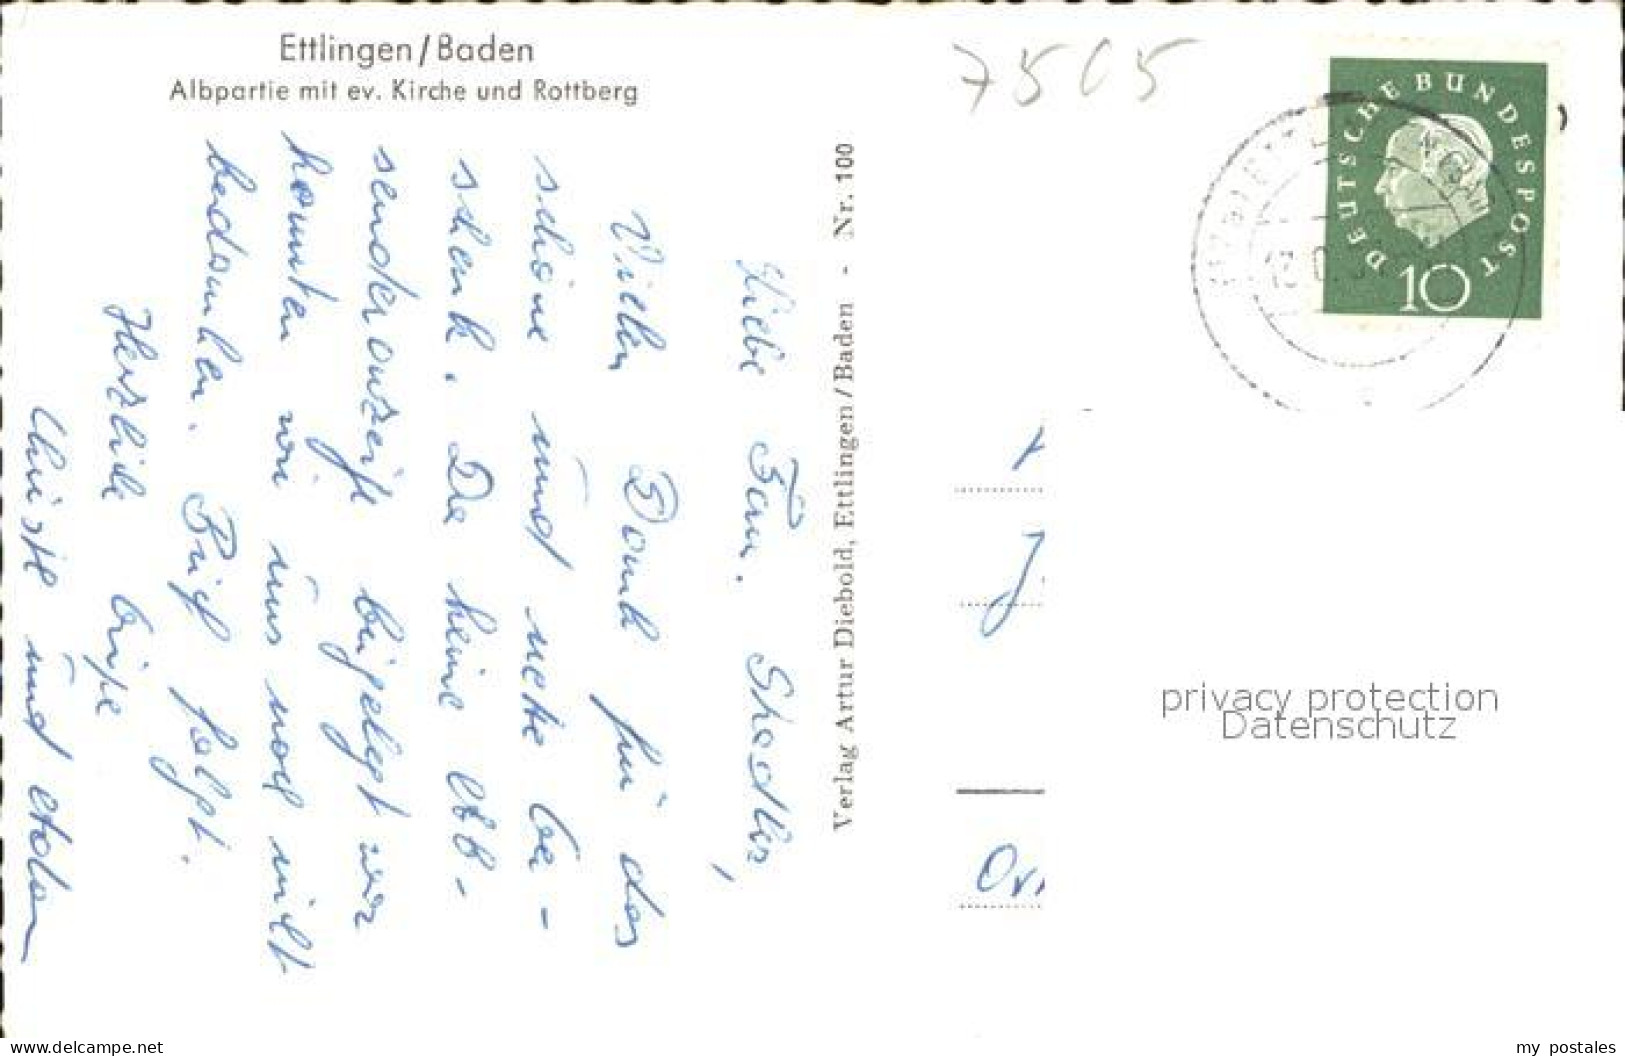 Ettlingen/Baden
Albpartie mit ev. Kirche und Rottberg
7505
DEUTSCHE BUNDESPOST
10
Liebe Fam.
Vielen Dank für das
schöne und nette Ge-
schenk. Da keine
senderanzeige beigelegt war
konnten wir uns noch nicht
bedanken. Brief folgt.
Herzliche Grüße
und
Verlag Artur Diebold, Ettlingen/Baden - Nr. 100
privacy protection
Datenschutz
delcampe.net
my postales